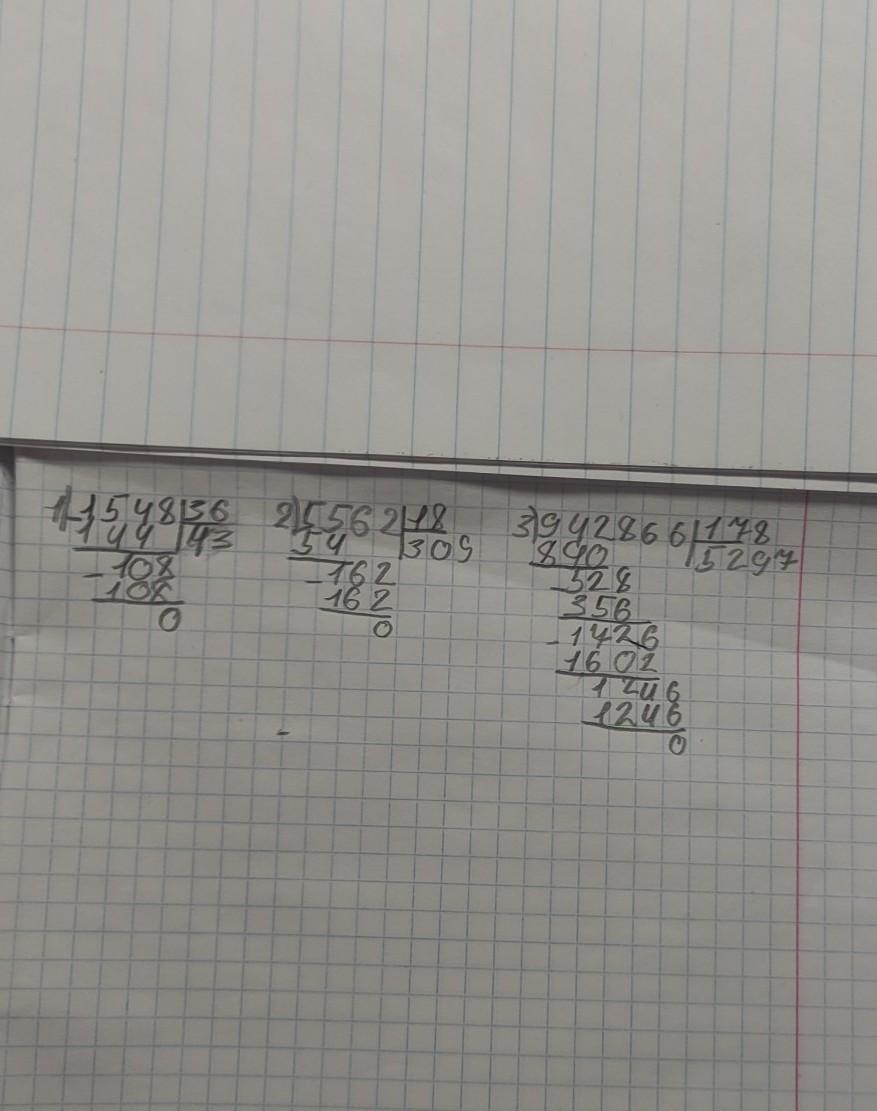 1) 1548 36
144 43
- 108
108
0
2) 5562 18
54 309
- 162
162
0
3) 942866 178
890 5297
- 528
356
- 1426
1602
1246
1246
0